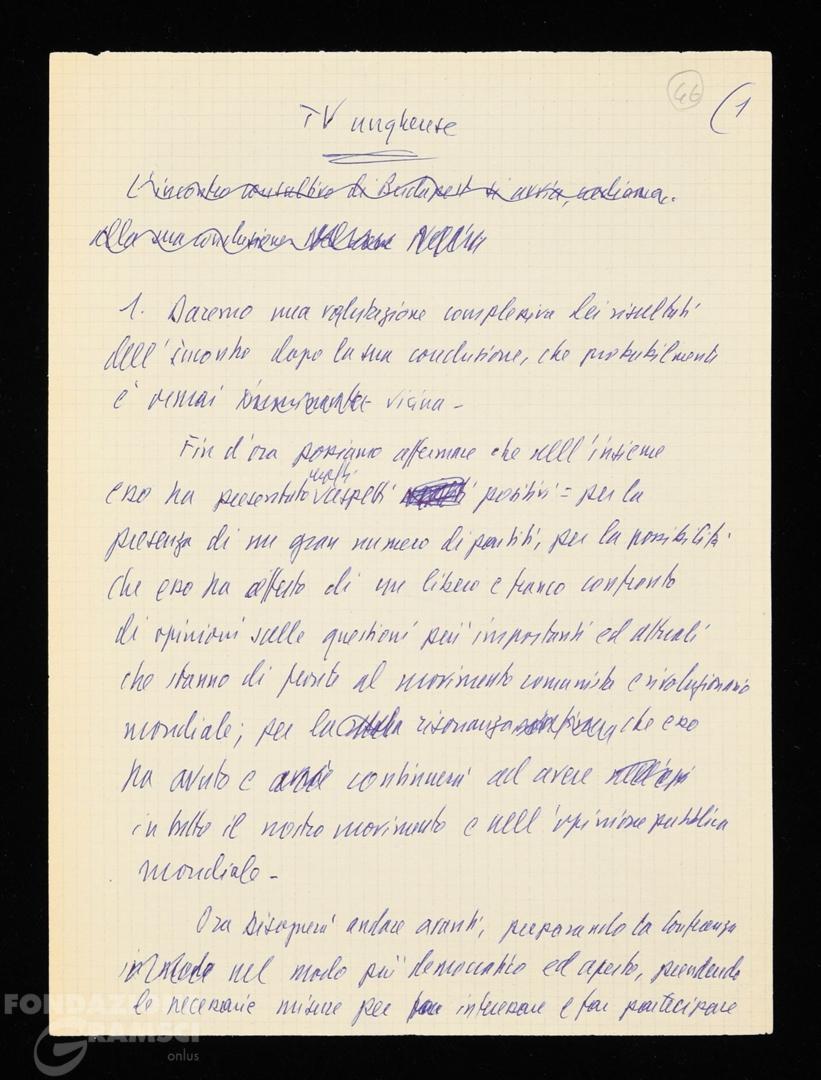 46
(1
TV ungherese
L'incontro consultivo di Budapest si avvia, vediamo,
alla sua conclusione
1. Daremo una valutazione complessiva dei risultati
dell'incontro dopo la sua conclusione, che probabilmente
è ormai vicina -
Fin d'ora possiamo affermare che nell'insieme
molti
esso ha presentato aspetti positivi = per la
presenza di un gran numero di partiti, per la possibilità
che esso ha offerto di un libero e franco confronto
di opinioni sulle questioni più importanti ed attuali
che stanno di fronte al movimento comunista e rivoluzionario
mondiale; per la risonanza che esso
ha avuto e continuerà ad avere
in tutto il nostro movimento e nell'opinione pubblica
mondiale -
Ora bisognerà andare avanti, preparando la Conferenza
nel modo più democratico ed aperto, prendendo
le necessarie misure per interessare e far partecipare
FONDAZIONE
GRAMSCI
onlus